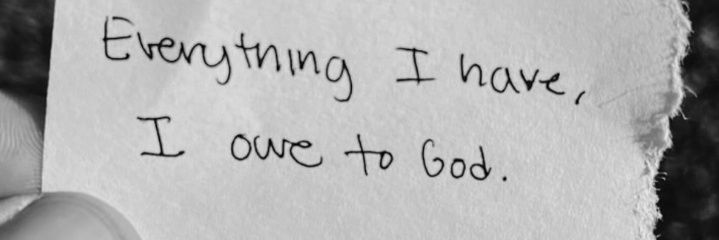 Everything I have,
I owe to God.